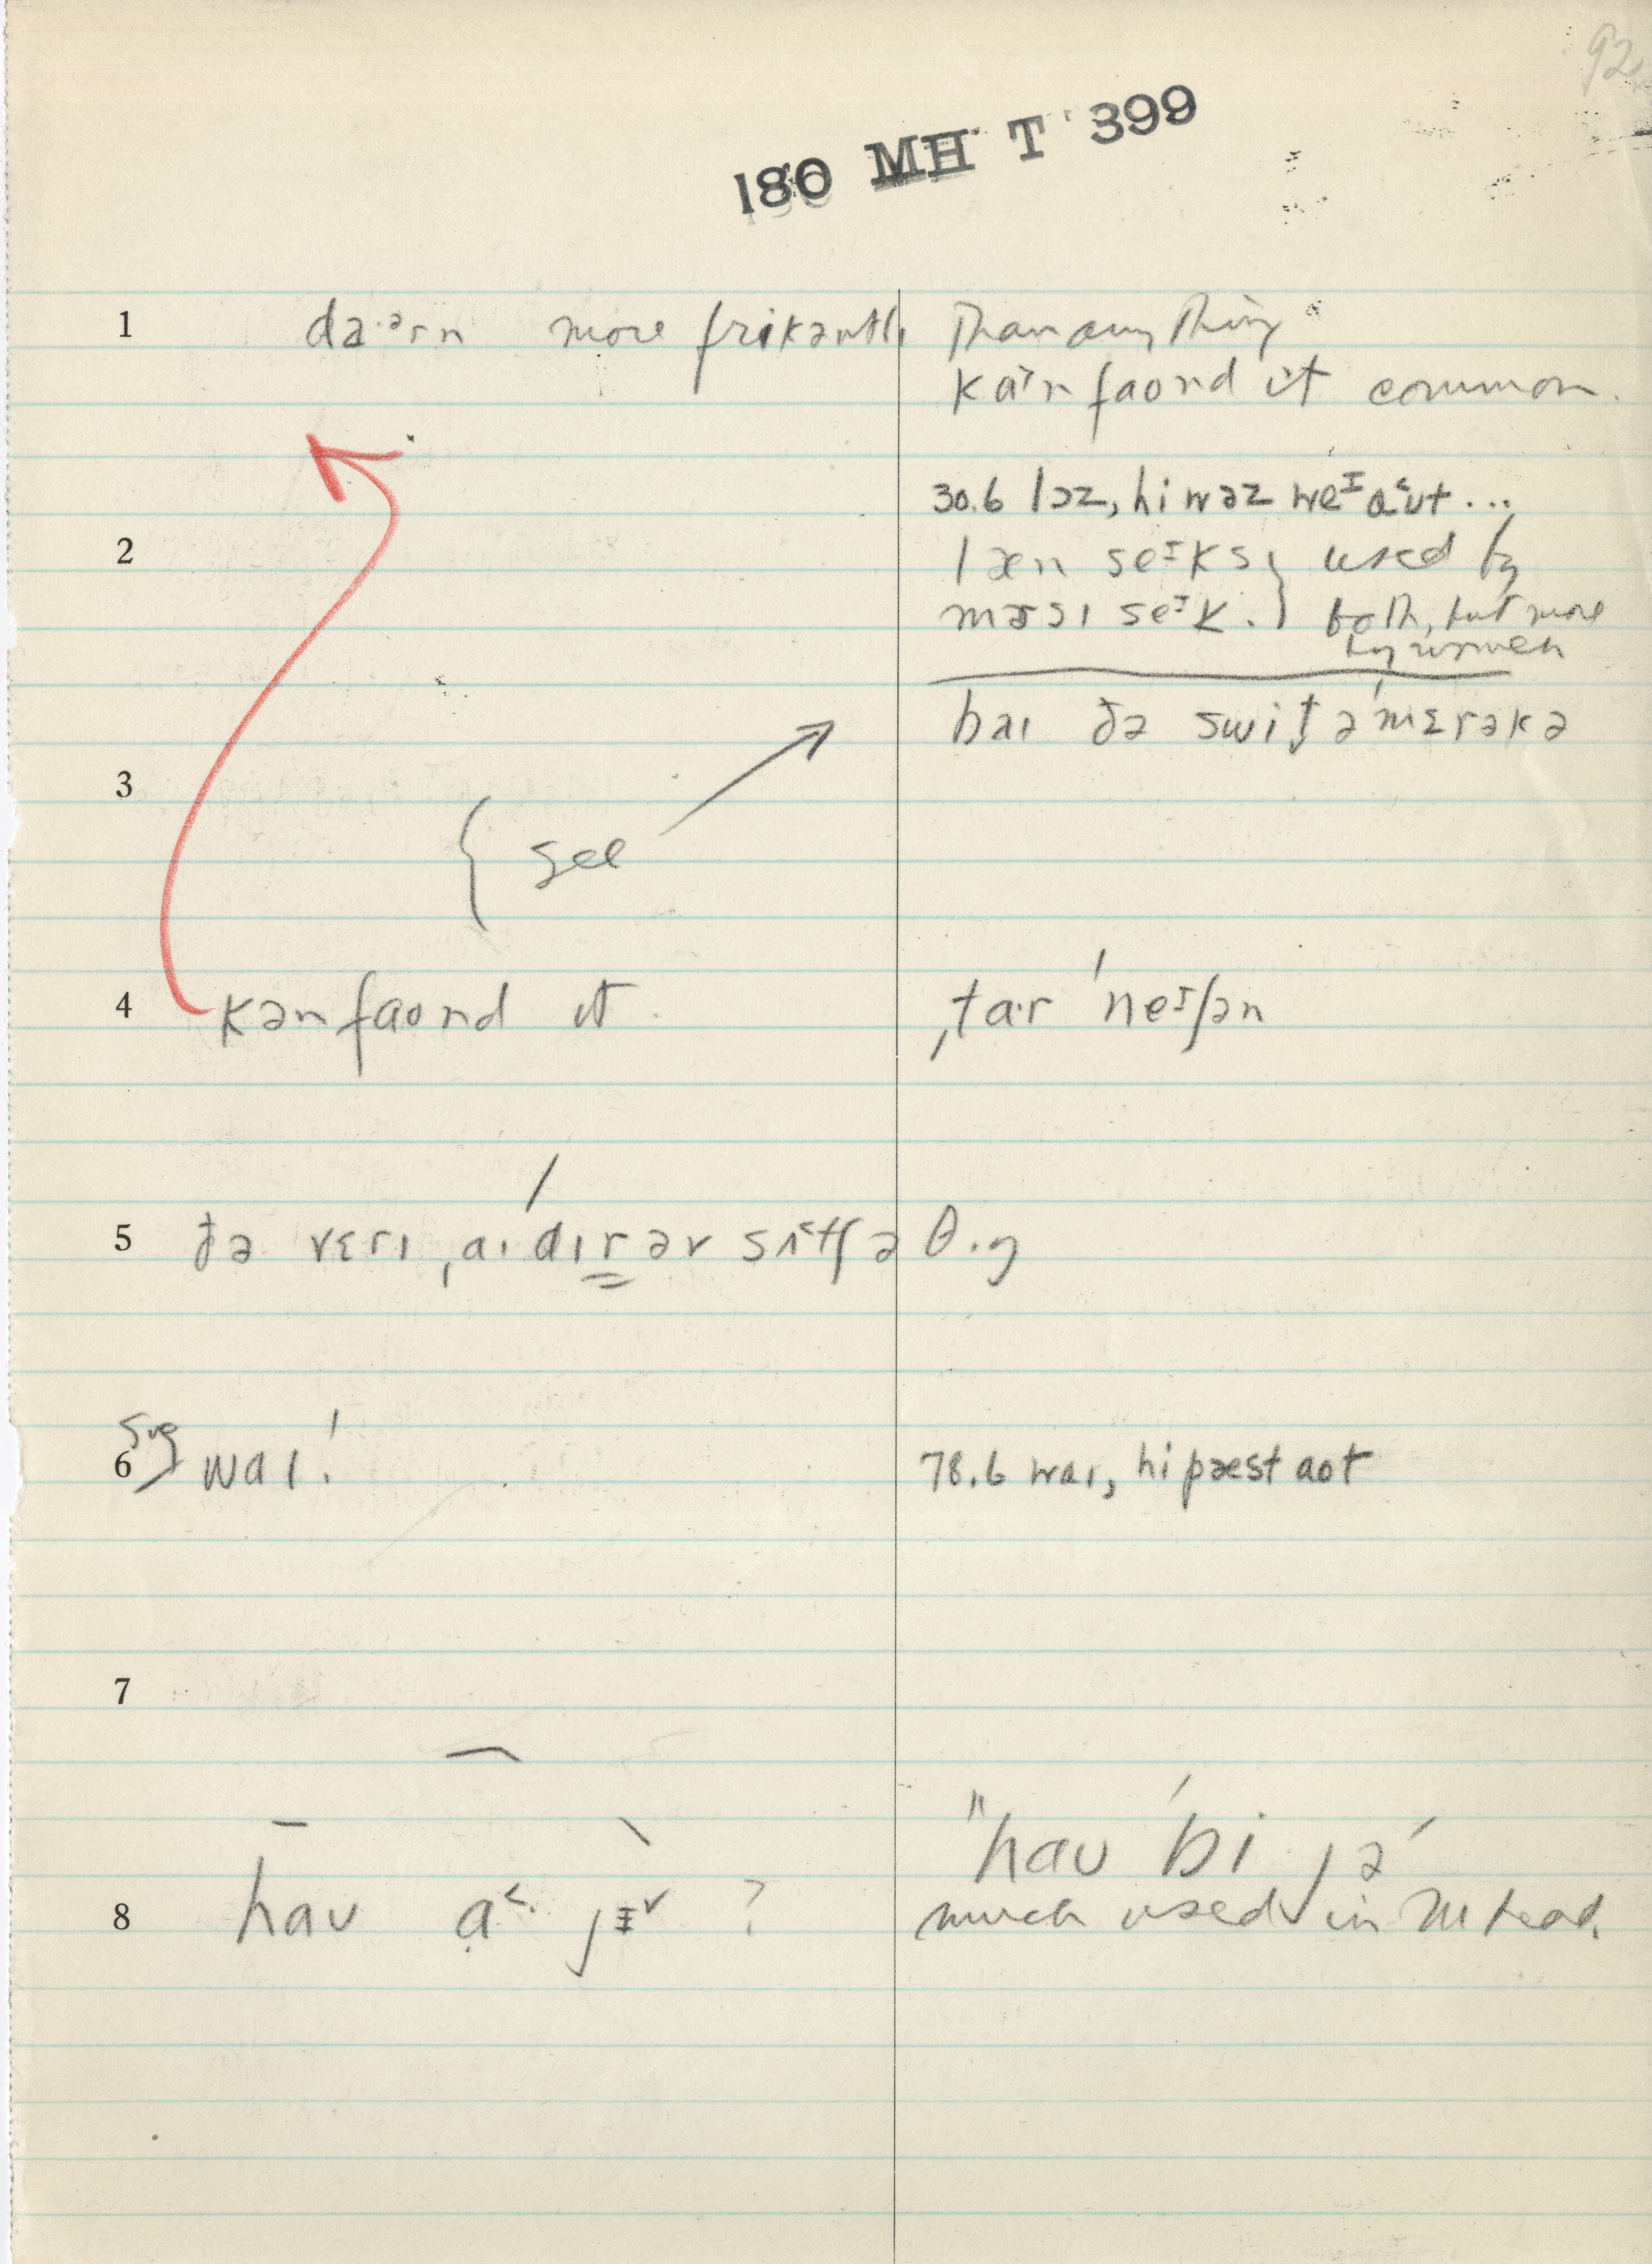 92
180 MH T 399
1 da·ərn more frikəntlɪ than anything
kənfaʊnd it common.
30.6 lɔz, hi wəz weᴵ aʊt ...
2 læn seᴵks } used by
mɜsɪ seᴵk. } both, but more
by women
baɪ ðə swit̬ əˈmɛrəkə
3
{ see
4 kənfaʊnd it ˌtɑ·r ˈneᴵʃən
5 ðə vɛrɪ ˌaɪˈdɪr əv sʌtʃ ə θɪŋ
6 sug) waɪ! 78.6 waɪ, hi pæst aʊt
7
8 haʊ ɑ˂· jᵻ˅ ? "haʊ ˈbi jə
much used in Mhead.